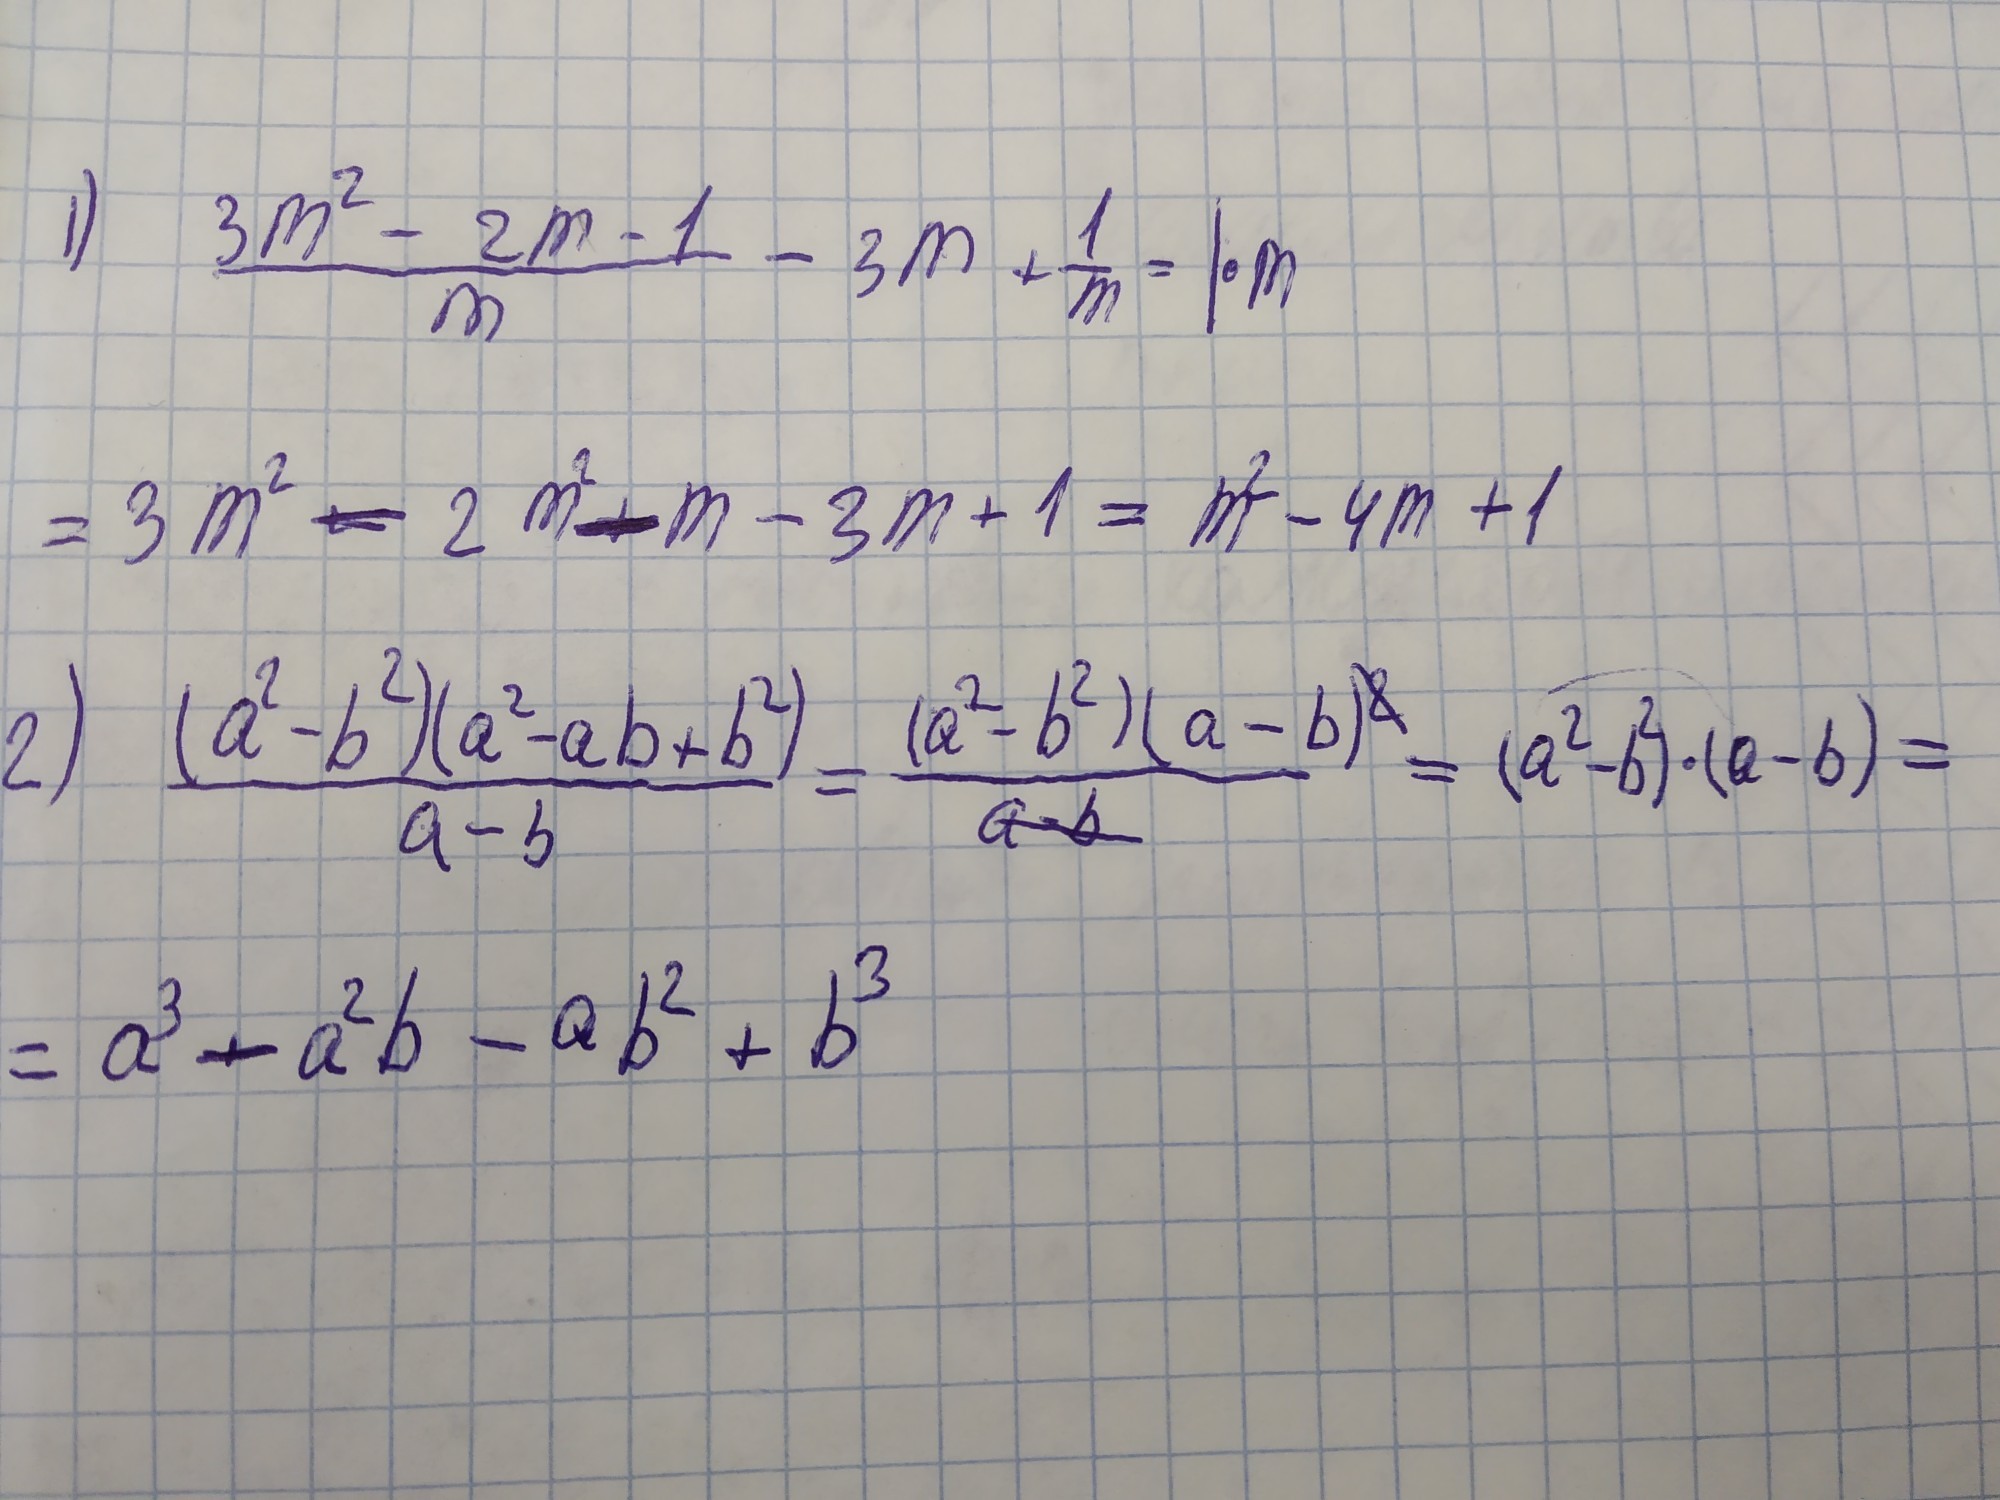 1) (3m² - 2m - 1)/m - 3m + 1/m = |·m
= 3m² - 2m² - m - 3m + 1 = m² - 4m + 1
2) (a² - b²)(a² - ab + b²)/(a - b) = (a² - b²)(a - b)²/(a - b) = (a² - b²)·(a - b) =
= a³ - a²b - ab² + b³